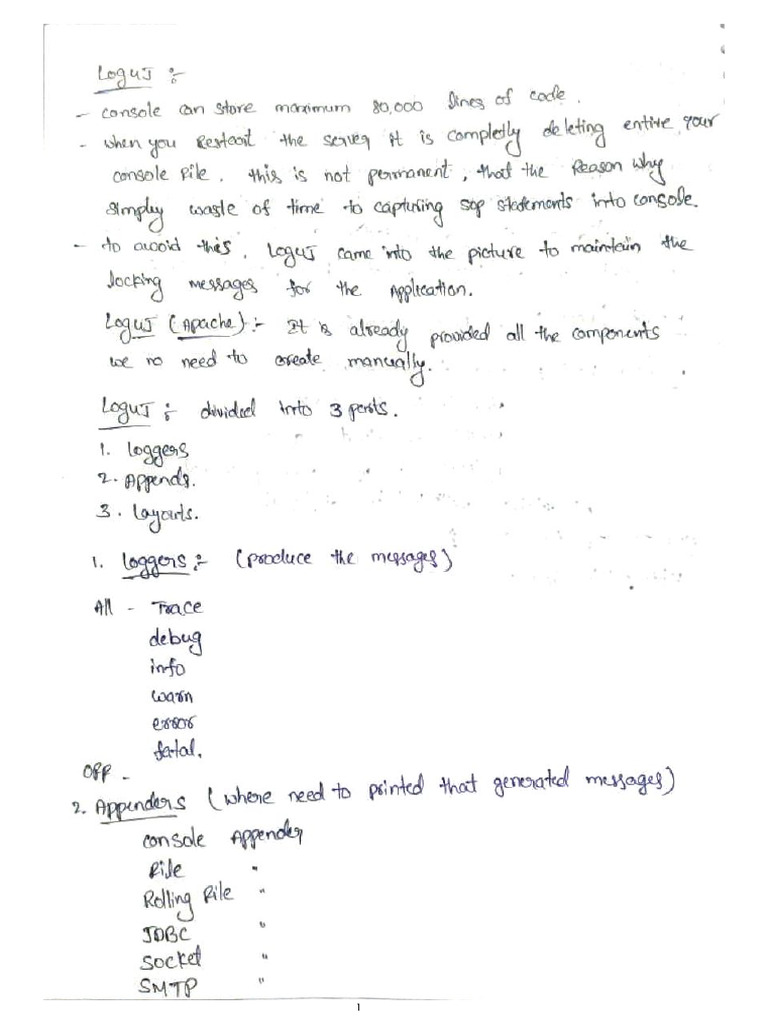 Log4J :-
- console can store maximum 80,000 lines of code.
- when you Restart the server it is completly deleting entire your
console file. this is not permanent, that the Reason why
simply waste of time to capturing sop statements into console.
- to avoid this, Log4J came into the picture to maintain the
locking messages for the Application.
Log4J (Apache) :- It is already provided all the components
we no need to create manually.
Log4J :- divided into 3 parts.
1. loggers
2. Appends.
3. layouts.
1. loggers :- (produce the messages)
All - Trace
debug
info
warn
error
fatal.
OFF -
2. Appenders (where need to printed that generated messages)
console Appender
File "
Rolling File "
JDBC "
Socket "
SMTP "
1